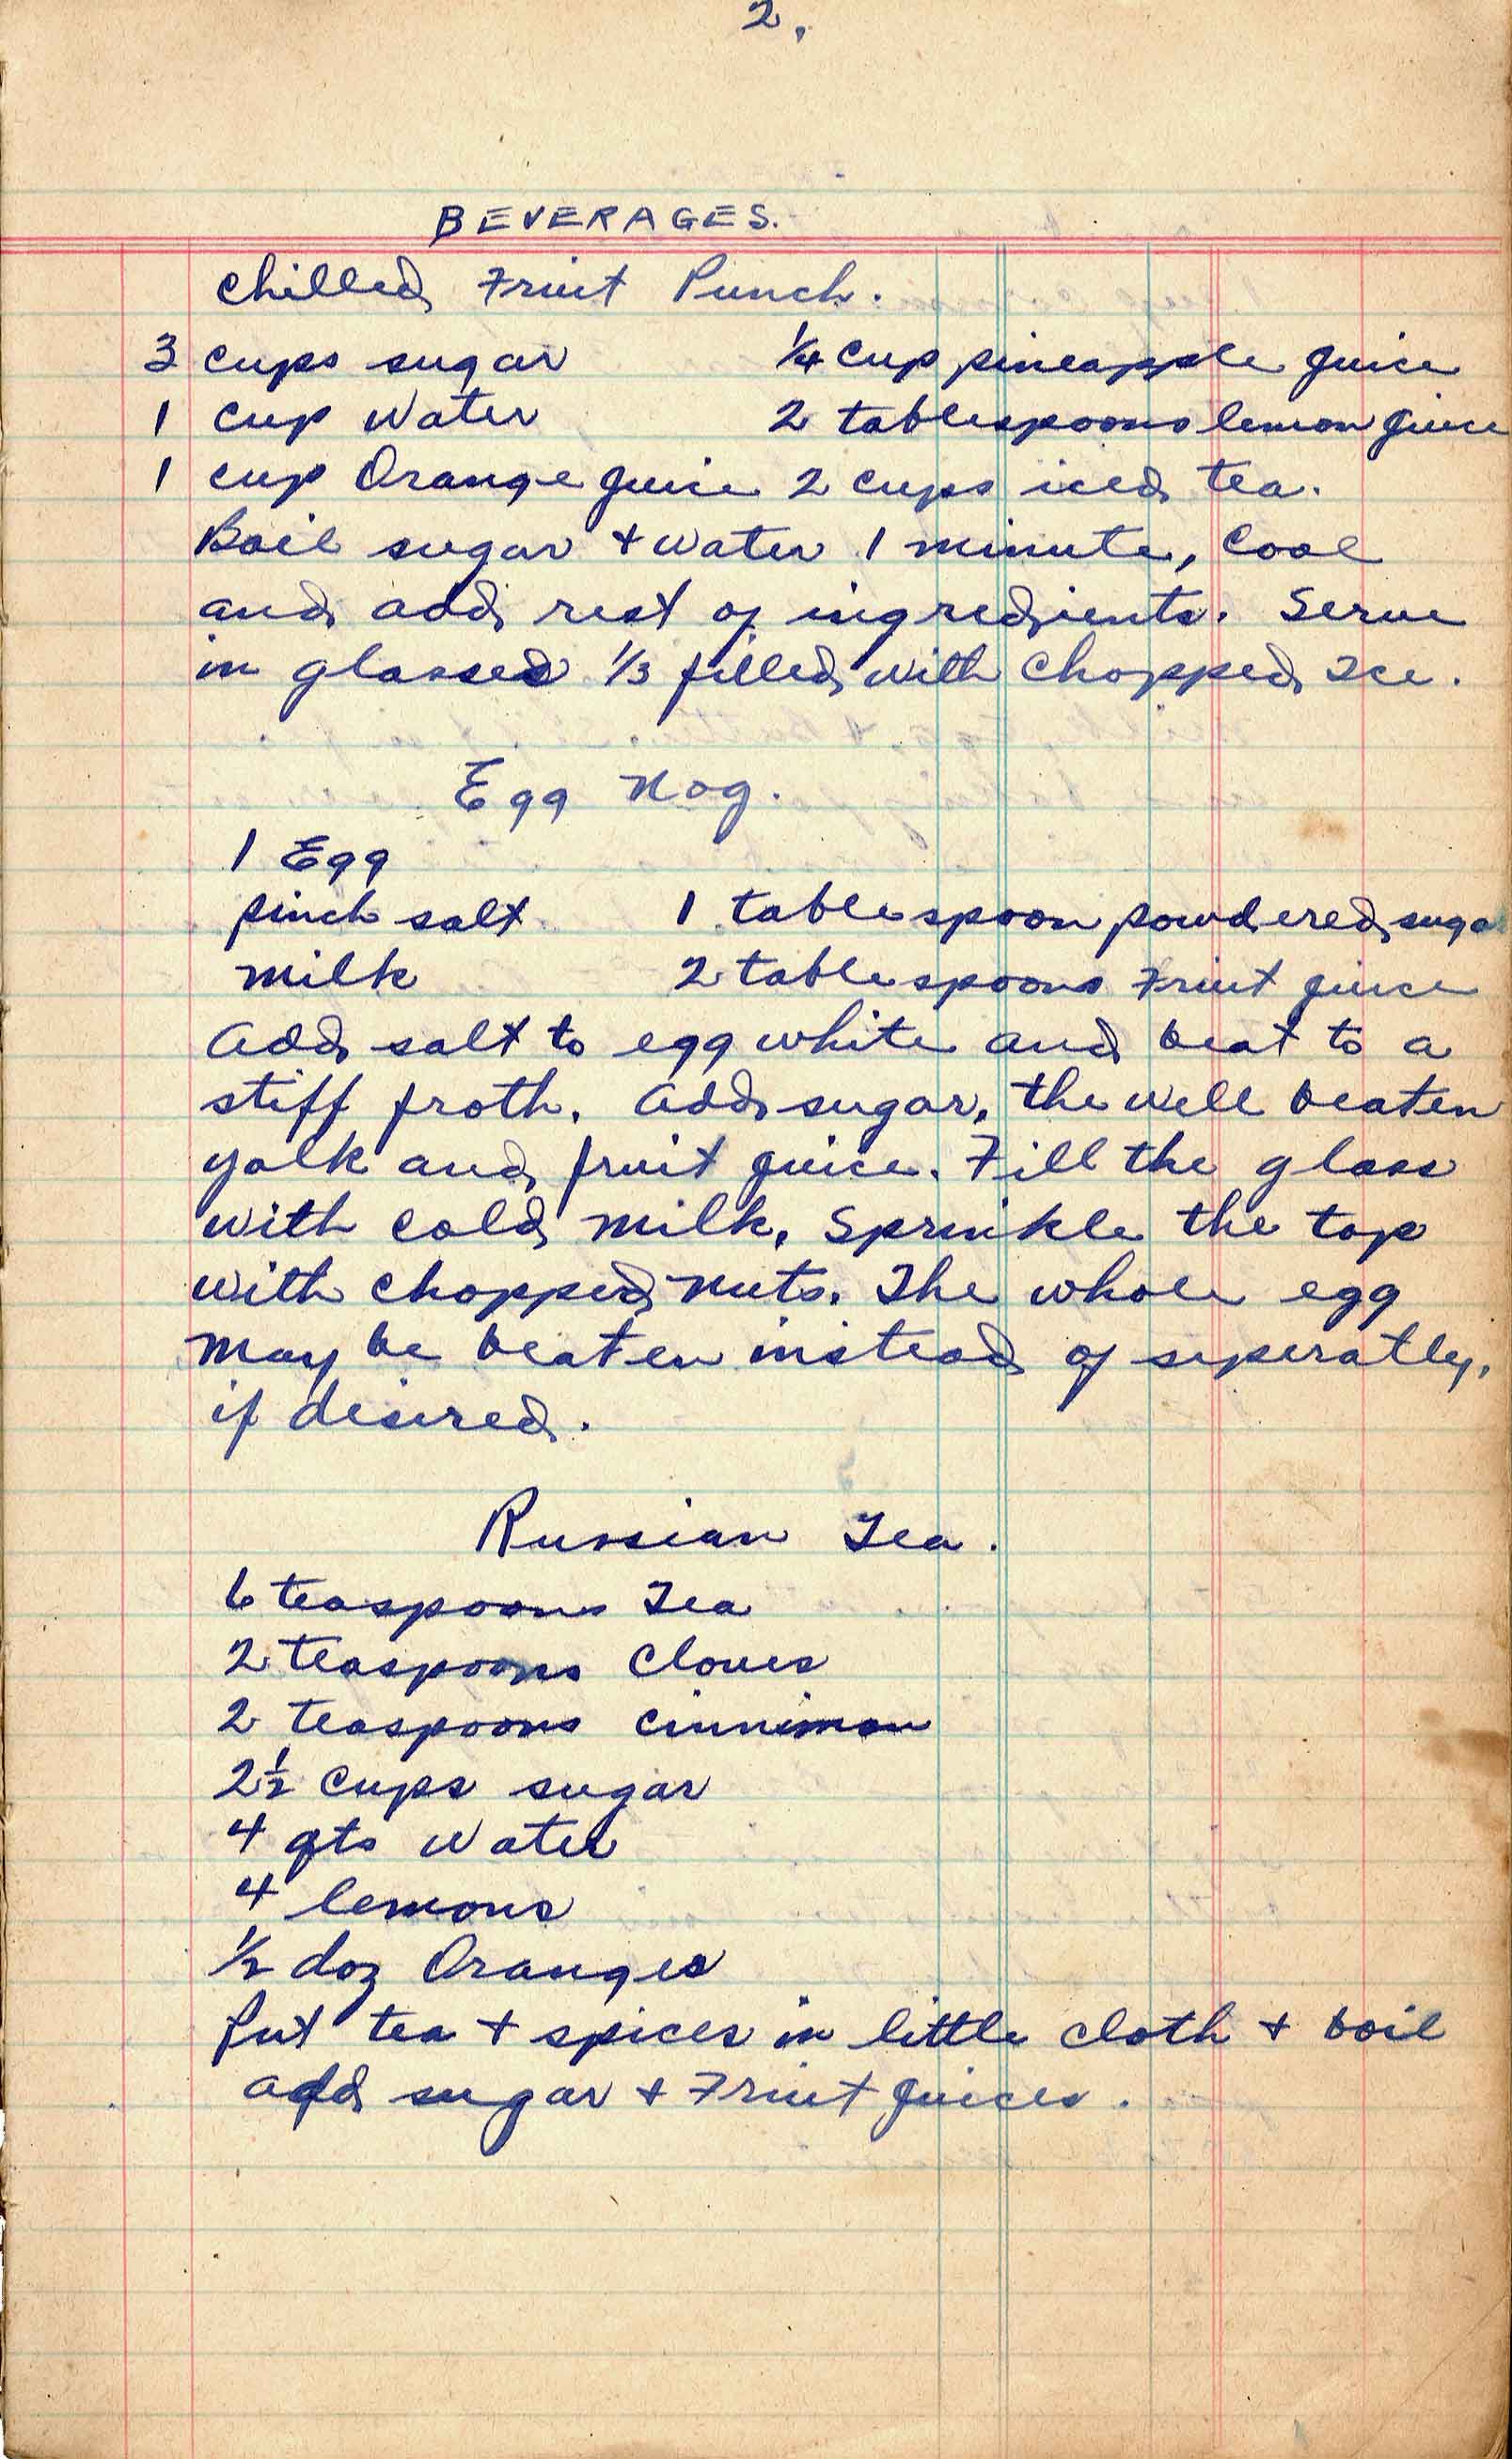 2.
BEVERAGES.
Chilled Fruit Punch.
3 cups sugar 1/4 cup pineapple juice
1 cup water 2 tablespoons lemon juice
1 cup Orange juice 2 cups iced tea.
Boil sugar + water 1 minute, Cool
and add rest of ingredients. Serve
in glasses 1/3 filled with chopped Ice.
Egg Nog.
1 Egg
pinch salt 1 tablespoon powdered sugar
milk 2 tablespoons Fruit juice
Add salt to egg white and beat to a
stiff froth. Add sugar, the well beaten
yolk and fruit juice. Fill the glass
with cold milk, Sprinkle the top
with chopped nuts. The whole egg
may be beaten instead of seperatly,
if desired.
Russian Tea.
6 teaspoons Tea
2 teaspoons Cloves
2 teaspoons cinnimon
2 1/2 cups sugar
4 qts water
4 lemons
1/2 doz Oranges
Put tea + spices in little cloth + boil
add sugar + Fruit juices.